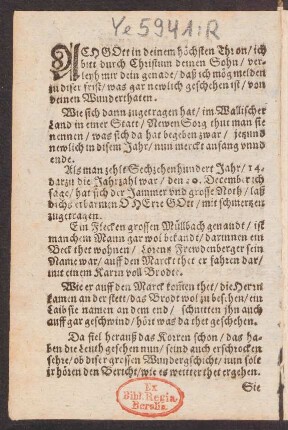 Ye 5941:R
ACH GOtt in deinem höchsten Thron / ich
bitt durch Christum deinen Sohn / ver-
leyh mir dein genade / daß ich mög melden
zu diser frist / was gar newlich geschehen ist / von
deinen Wunderthaten.
Wie sich dann zugetragen hat / im Wallischer
Land in einer Statt / Newen Sorg thut man sie
nennen / was sich da hat begeben zwar / jetzund
newlich in disem Jahr / nun merckt anfang vnnd
ende.
Als man zehlt Sechzehenhundert Jahr / 14.
darzu die Jahrzahl war / den 20. December ich
sage / hat sich der Jammer vnd grosse Noth / laß
dichs erbarmen O HErre GOtt / mit schmertzen
zugetragen.
Ein Flecken grossen Müllbach genandt / ist
manchem Mann gar wol bekandt / darunnen ein
Beck thet wohnen / Lorentz Frewdenberger sein
Name war / auff den Marckt thet er fahren dar /
mit einem Karrn voll Brodte.
Wie er auff den Marck kom̃et thet / die Herrn
kamen an der stett / das Brodt wol zu besehen / ein
Laib sie namen an dem end / schnitten jhn auch
auff gar geschwind / hört was da thet geschehen.
Da fiel herauß das Korren schon / das ha-
ben die Leuth gesehen nun / seind auch erschrocken
sehre / ob diser grossen Wundergschicht / nun solt
jr hören den Bericht / wie es weitter thet ergehen.
Sie
Ex
Bibl. Regia
Berolin.